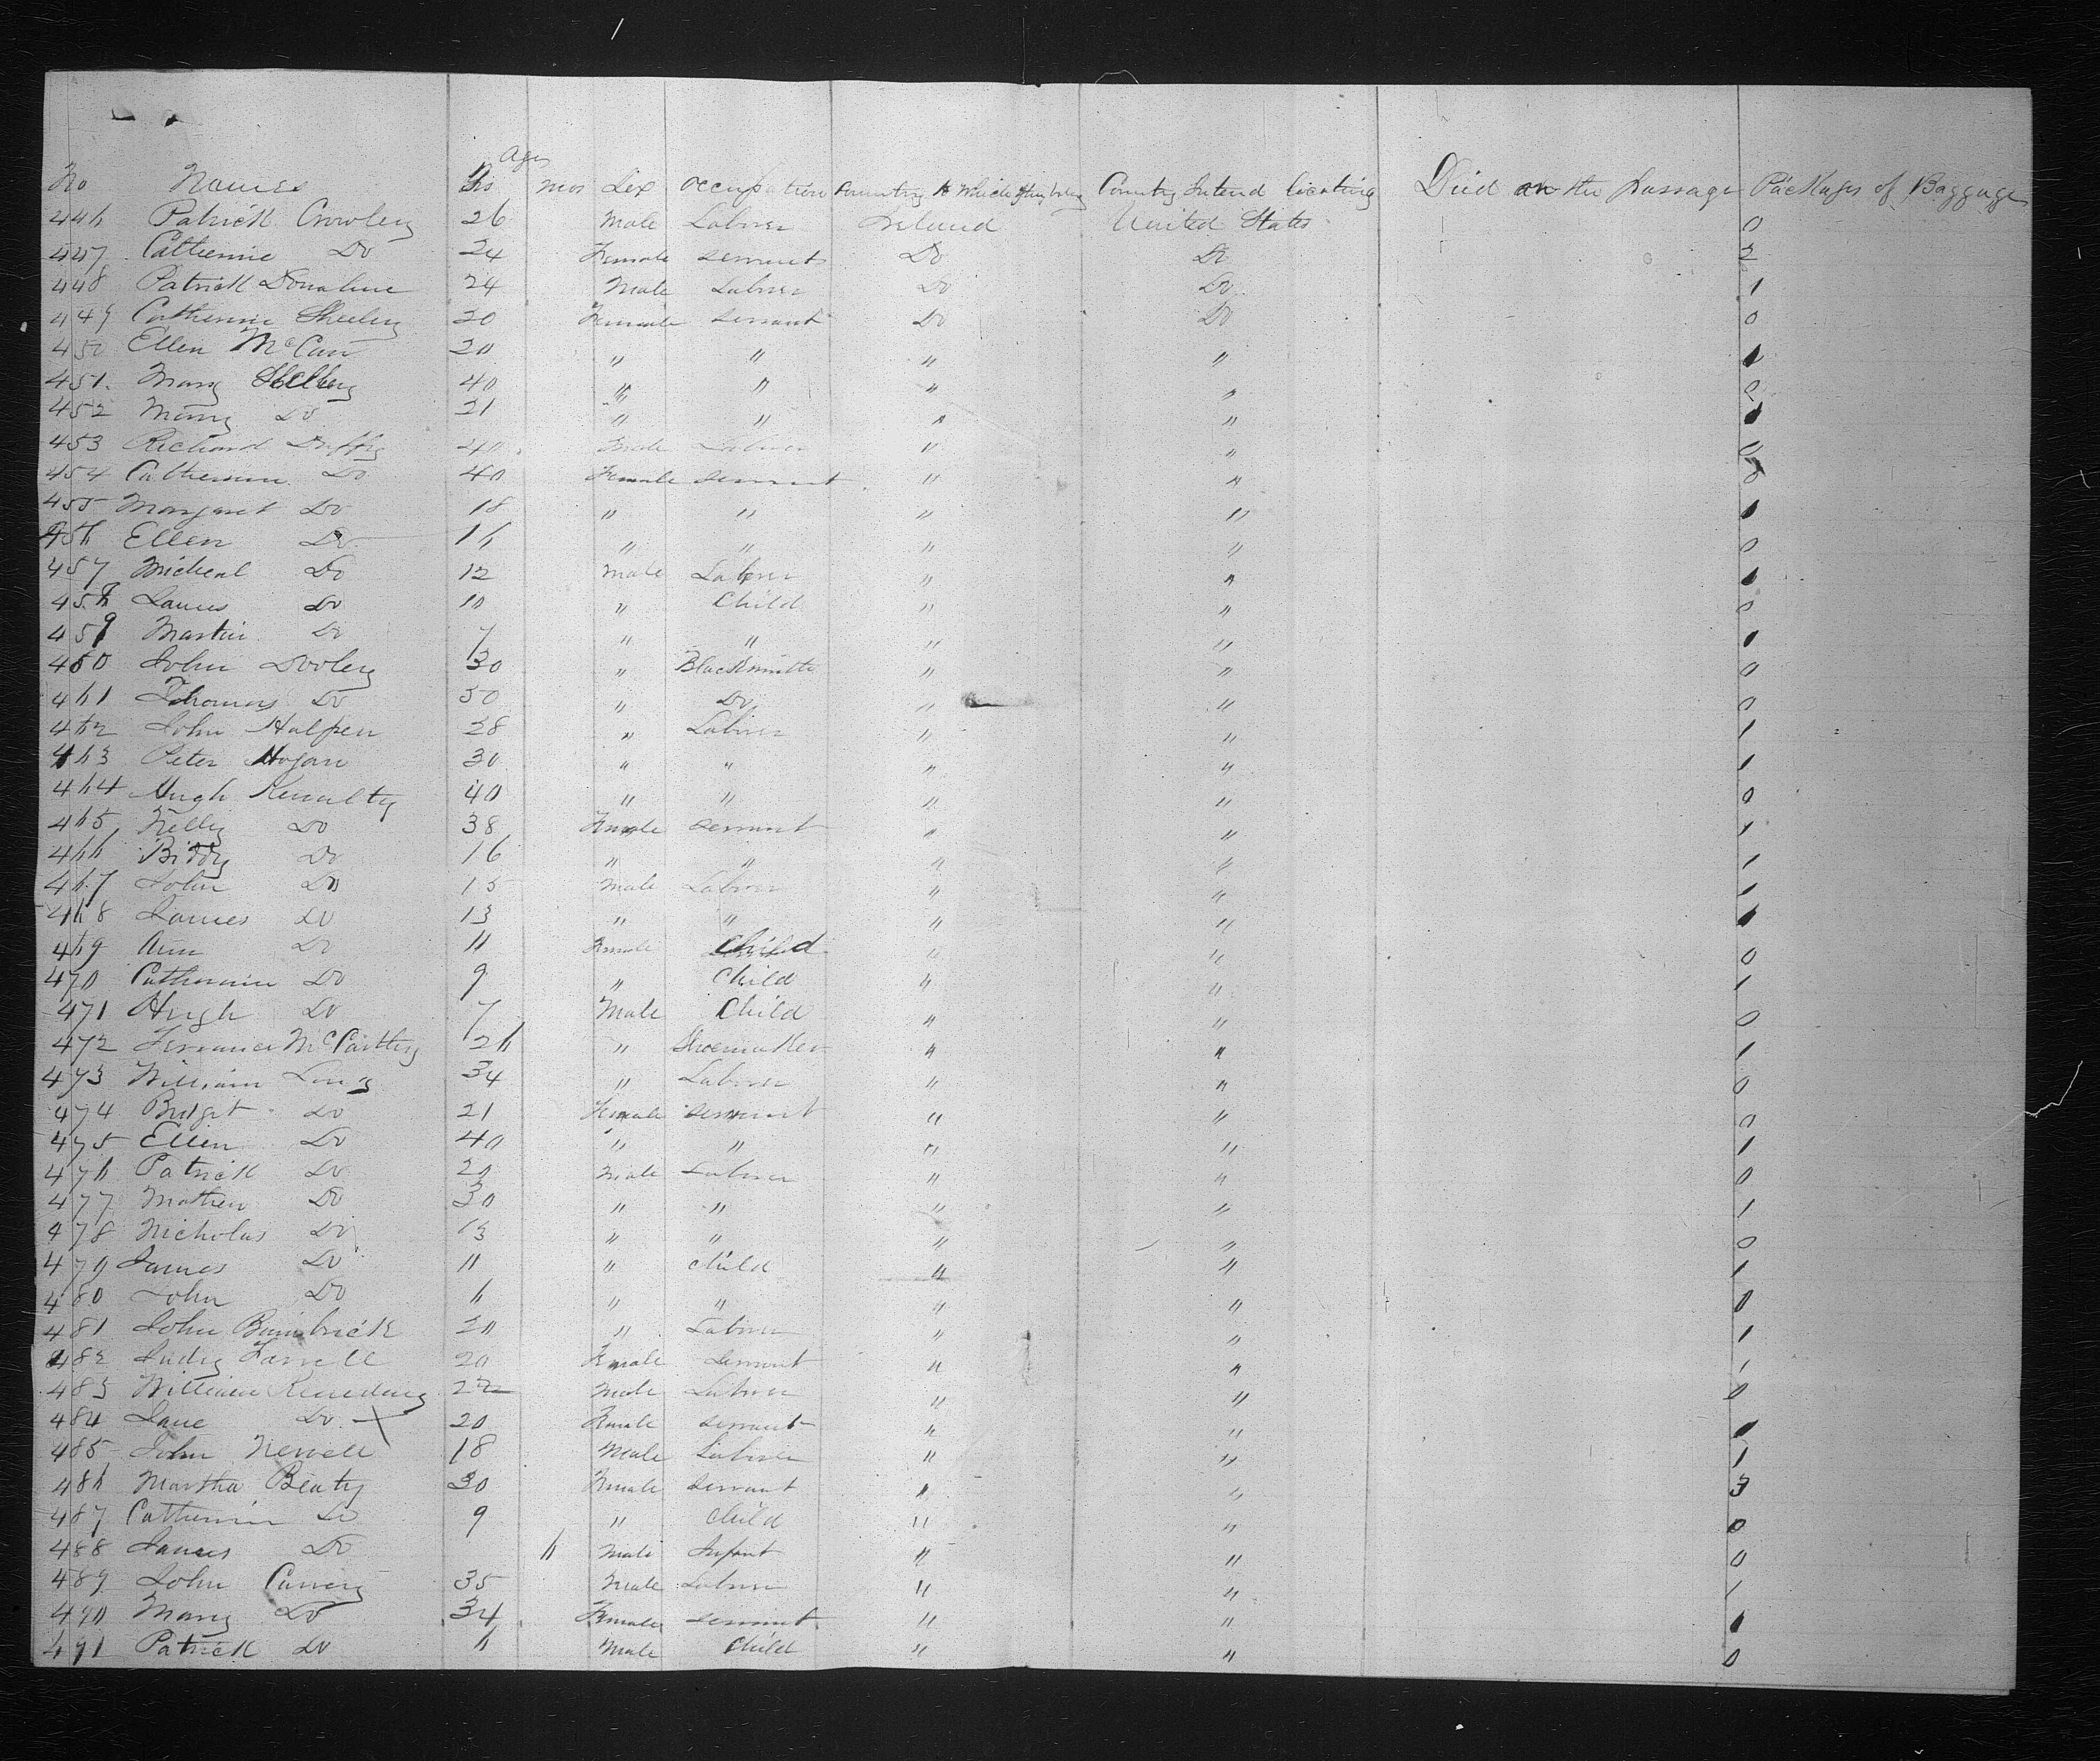 Ages
No Names Yrs mos Sex occupation Country to Which they belong Country Intend locating Died on the passage Packages of Baggage
446 Patrick Crowley 26 Male Labrer Ireland United States 0
447 Catherine Do 24 Female servant Do Do 2
448 Patrick Donahue 24 Male Labrer Do Do 1
449 Catherine Sheehy 20 Female servant Do Do 0
450 Ellen McCan 20 " " " " 1
451. Mary 40 " " " " 0
452 Mary Do 21 " " " " 1
453 Richard Duffy 40 Male Labrer " " 0
454 Catherine Do 40 Female servant " " 0
455 Margaret Do 18 " " " " 1
456 Ellen Do 16 " " " " 0
457 Micheal Do 12 Male Labrer " " 1
458 James Do 10 " Child " " 0
459 Martin Do 7 " " " " 1
460 John Dooley 30 " Blacksmith " " 0
461 Thomas Do 50 " Do " " 0
462 John Halpen 28 " Labrer " " 1
463 Peter Hogan 30 " " " " 1
464 Hugh 40 " " " " 0
465 Nelly Do 38 Female servant " " 1
466 Biddy Do 16 " " " " 1
467 John Do 15 Male Labrer " " 1
468 James Do 13 " " " " 1
469 Ann Do 11 Female Child " " 0
470 Catherine Do 9 " Child " " 1
471 Hugh Do 7 Male Child " " 0
472 Terrance McCarthy 26 " Shoemaker " " 1
473 William Long 34 " Labrer " " 0
474 Bridget Do 21 Female servant " " 0
475 Ellen Do 40 " " " " 1
476 Patrick Do 20 Male Labrer " " 0
477 Mathew Do 30 " " " " 1
478 Nicholas Do 13 " " " " 0
479 James Do 11 " child " " 1
480 John Do 6 " " " " 0
481 John Bumbrick 20 " Labrer " " 1
482 Judy Farrell 20 Female servant " " 1
483 William Kennedy 22 Male Labrer " " 0
484 Jane Do X 20 Female servant " " 1
485 John Newell 18 Male Labrer " " 1
486 Martha Beaty 30 Female servant " " 3
487 Catherine Do 9 " child " " 0
488 James Do 6 Male Infant " " 0
489 John 35 Male Labrer " " 1
490 Mary Do 34 Female servant " " 1
491 Patrick Do 6 Male Child " " 0